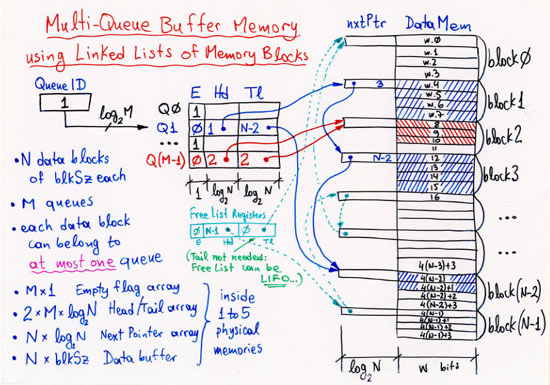 Multi-Queue Buffer Memory
using Linked Lists of Memory Blocks
Queue ID
1
log₂M
E Hd Tl
QØ 1
Q1 Ø 1 N-2
... 1
Q(M-1) Ø 2 2
1 log₂N log₂N
Free List Registers
Ø N-1 Ø
E Hd Tl
(Tail not needed:
Free List can be
LIFO...)
• N data blocks
of blkSz each
• M queues
• each data block
can belong to
at most one queue
• M×1 Empty flag array
• 2×M×log₂N Head/Tail array
• N×log₂N Next Pointer array
• N×blkSz Data buffer
inside
1 to 5
physical
memories
nxtPtr DataMem
w.0
w.1
w.2
w.3
blockØ
3 w.4
w.5
w.6
w.7
block1
8
9
10
11
block2
N-2 12
13
14
15
block3
16
...
4(N-3)+3
4(N-2)
4(N-2)+1
4(N-2)+2
4(N-2)+3
block(N-2)
4(N-1)
4(N-1)+1
4(N-1)+2
4(N-1)+3
block(N-1)
log₂N w bits